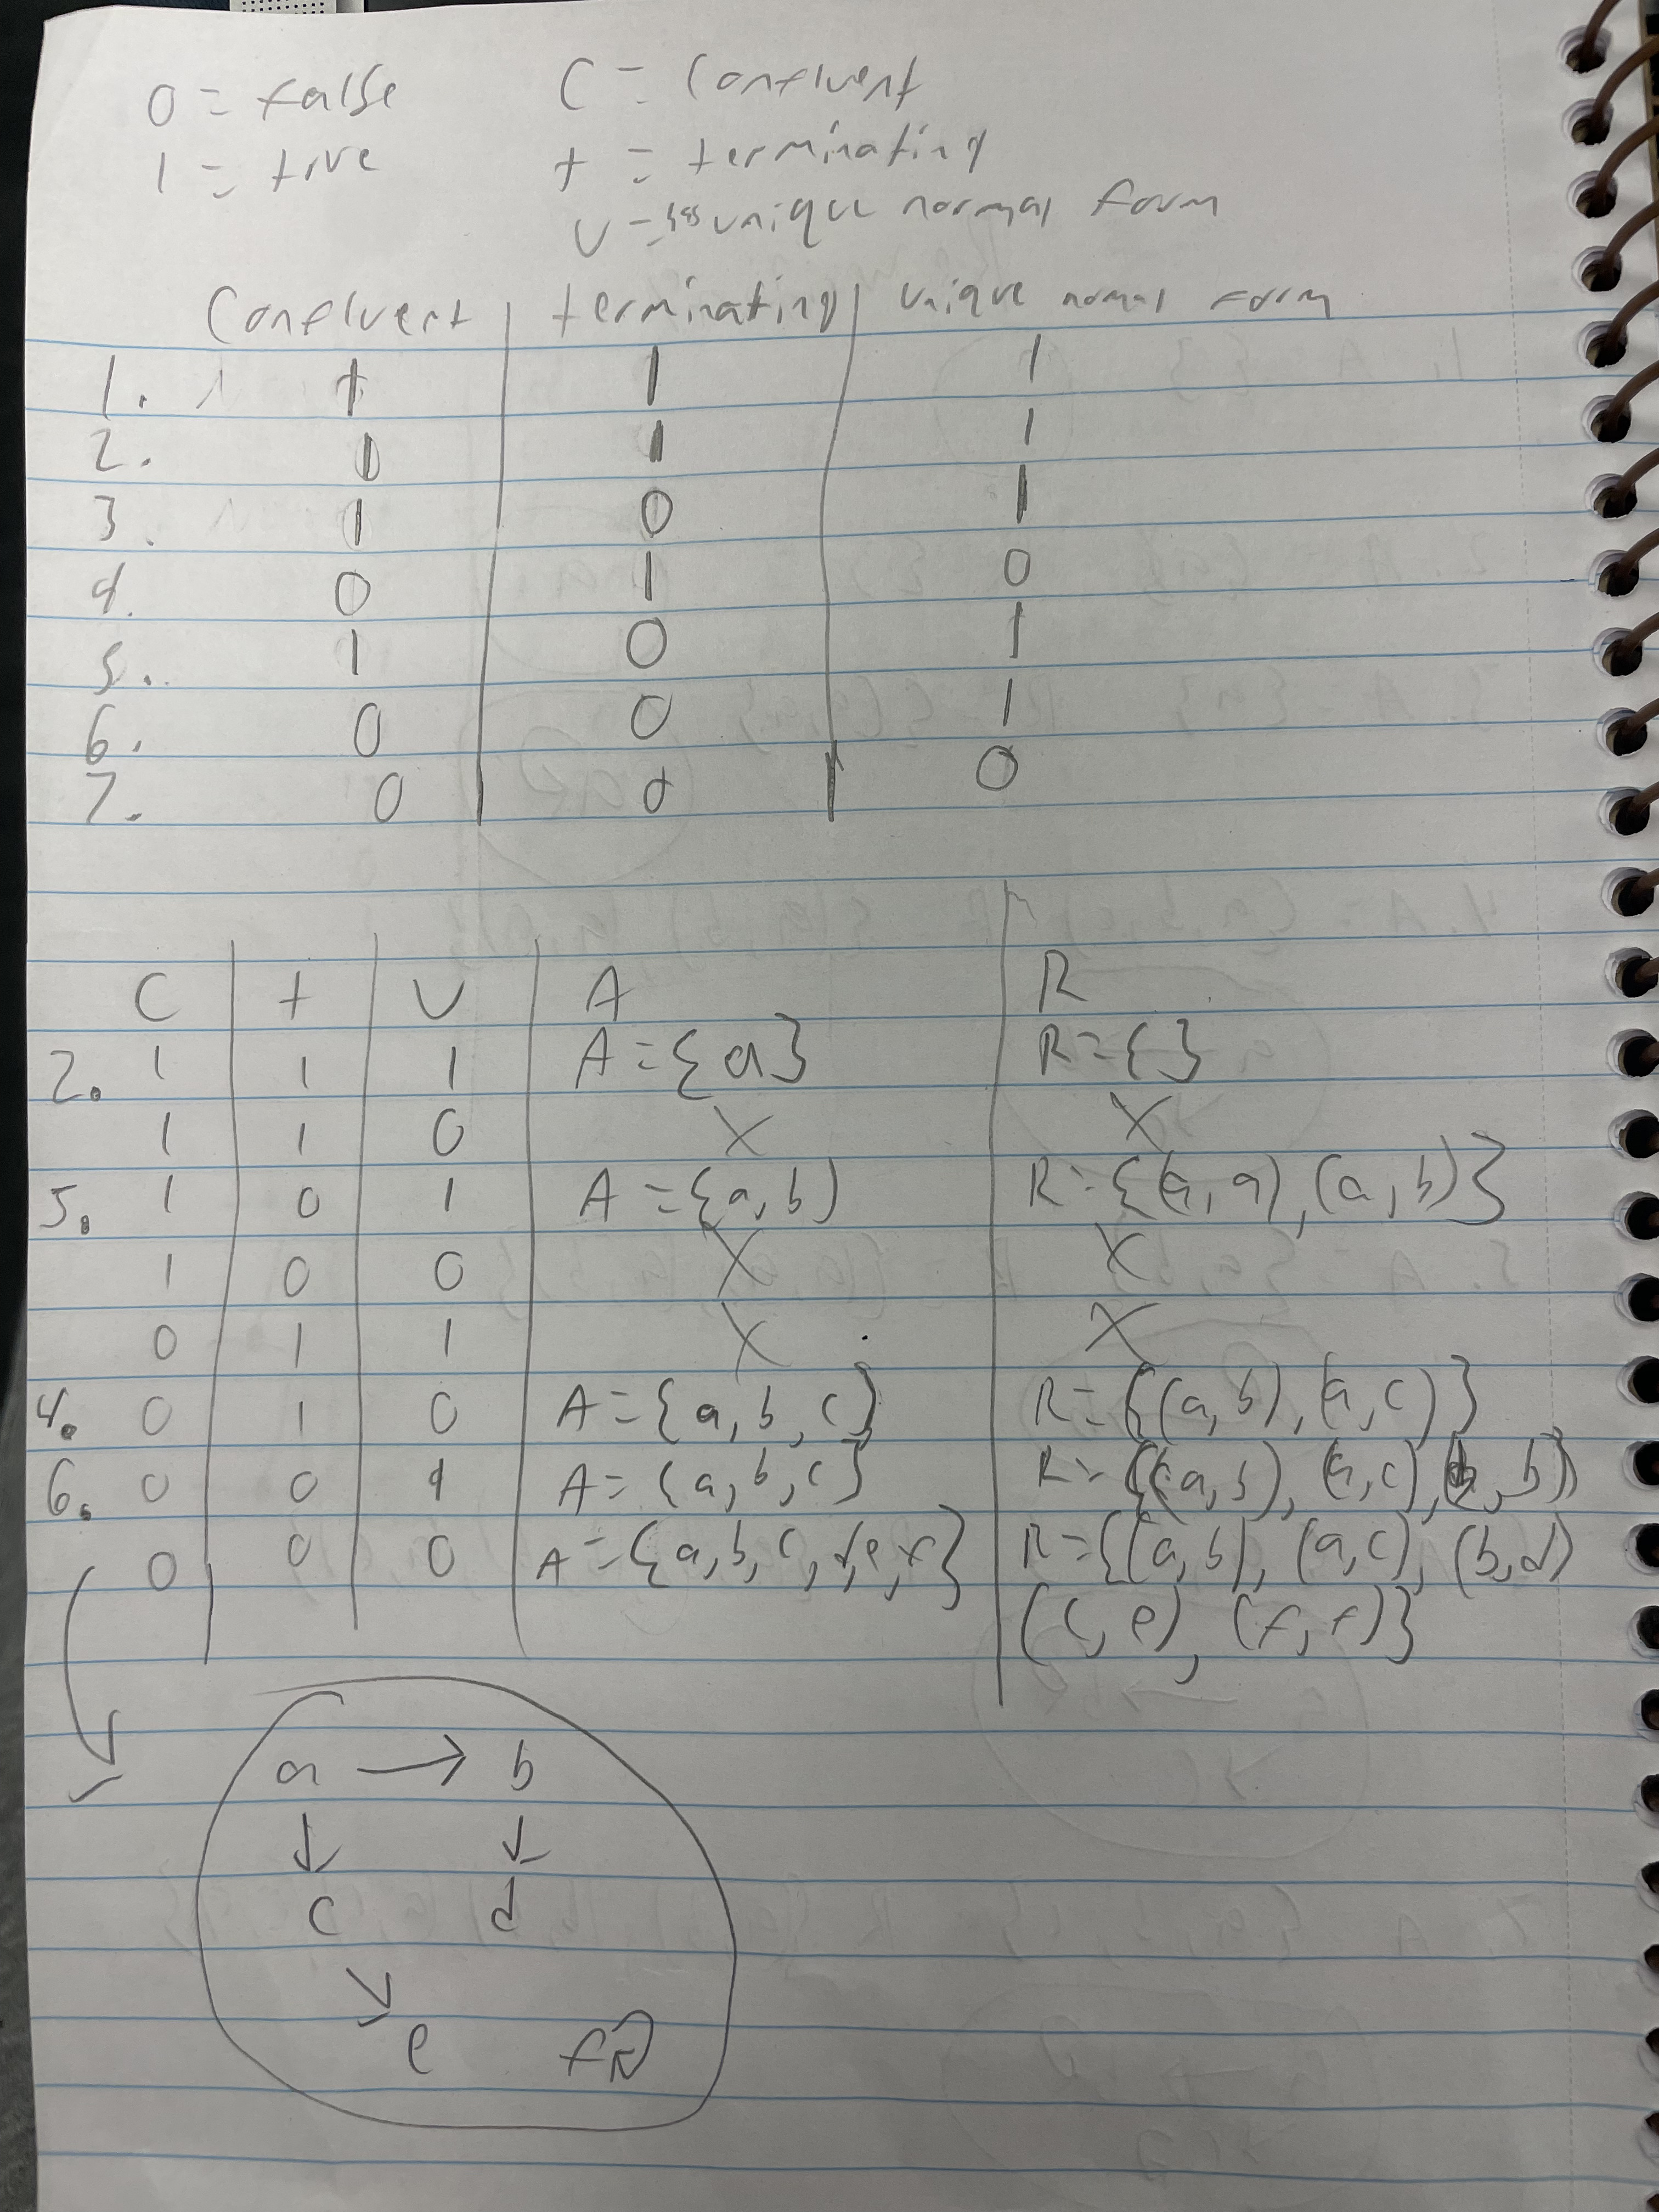 0 = false C = Confluent
1 = true t = terminating
U = has unique normal form
Confluent terminating unique normal form
1. 1 1 1
2. 1 1 1
3. 1 0 1
4. 0 1 0
5. 1 0 1
6. 0 0 1
7. 0 0 0
C t U A R
2. 1 1 1 A = {a} R = { }
1 1 0 X X
5. 1 0 1 A = {a, b} R = {(a, a), (a, b)}
1 0 0 X X
0 1 1 X X
4. 0 1 0 A = {a, b, c} R = {(a, b), (a, c)}
6. 0 0 1 A = {a, b, c} R = {(a, b), (a, c), (b, b)}
0 0 0 A = {a, b, c, d, e, f} R = {(a, b), (a, c), (b, d)
(c, e), (f, f)}
a → b
↓ ↓
c d
↘
e f